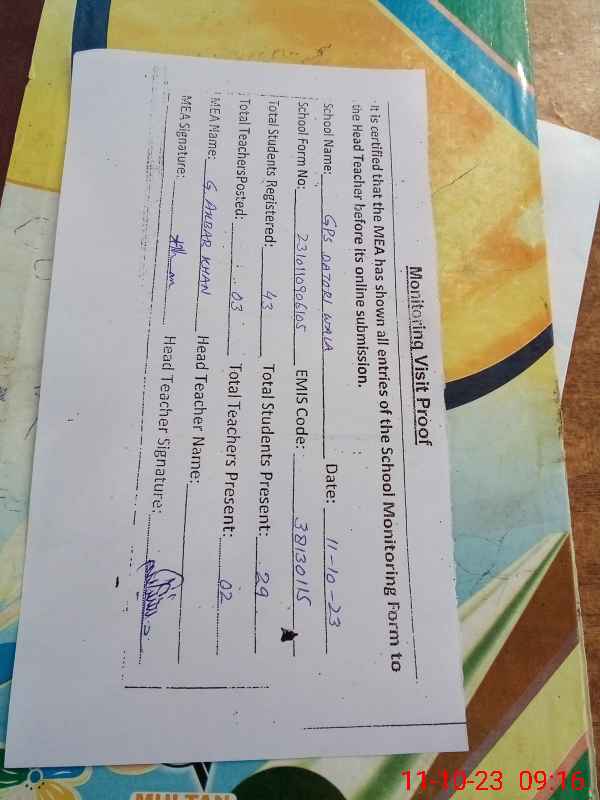 Monitoring Visit Proof
It is certified that the MEA has shown all entries of the School Monitoring Form to
the Head Teacher before its online submission.
School Name: GPS DATORI WALA Date: 11-10-23
School Form No: 2310110906105 EMIS Code: 38130115
Total Students Registered: 43 Total Students Present: 29
Total TeachersPosted: 03 Total Teachers Present: 02
MEA Name: G. AKBAR KHAN Head Teacher Name:
MEA Signature: Head Teacher Signature:
MULTAN
11-10-23 09:16